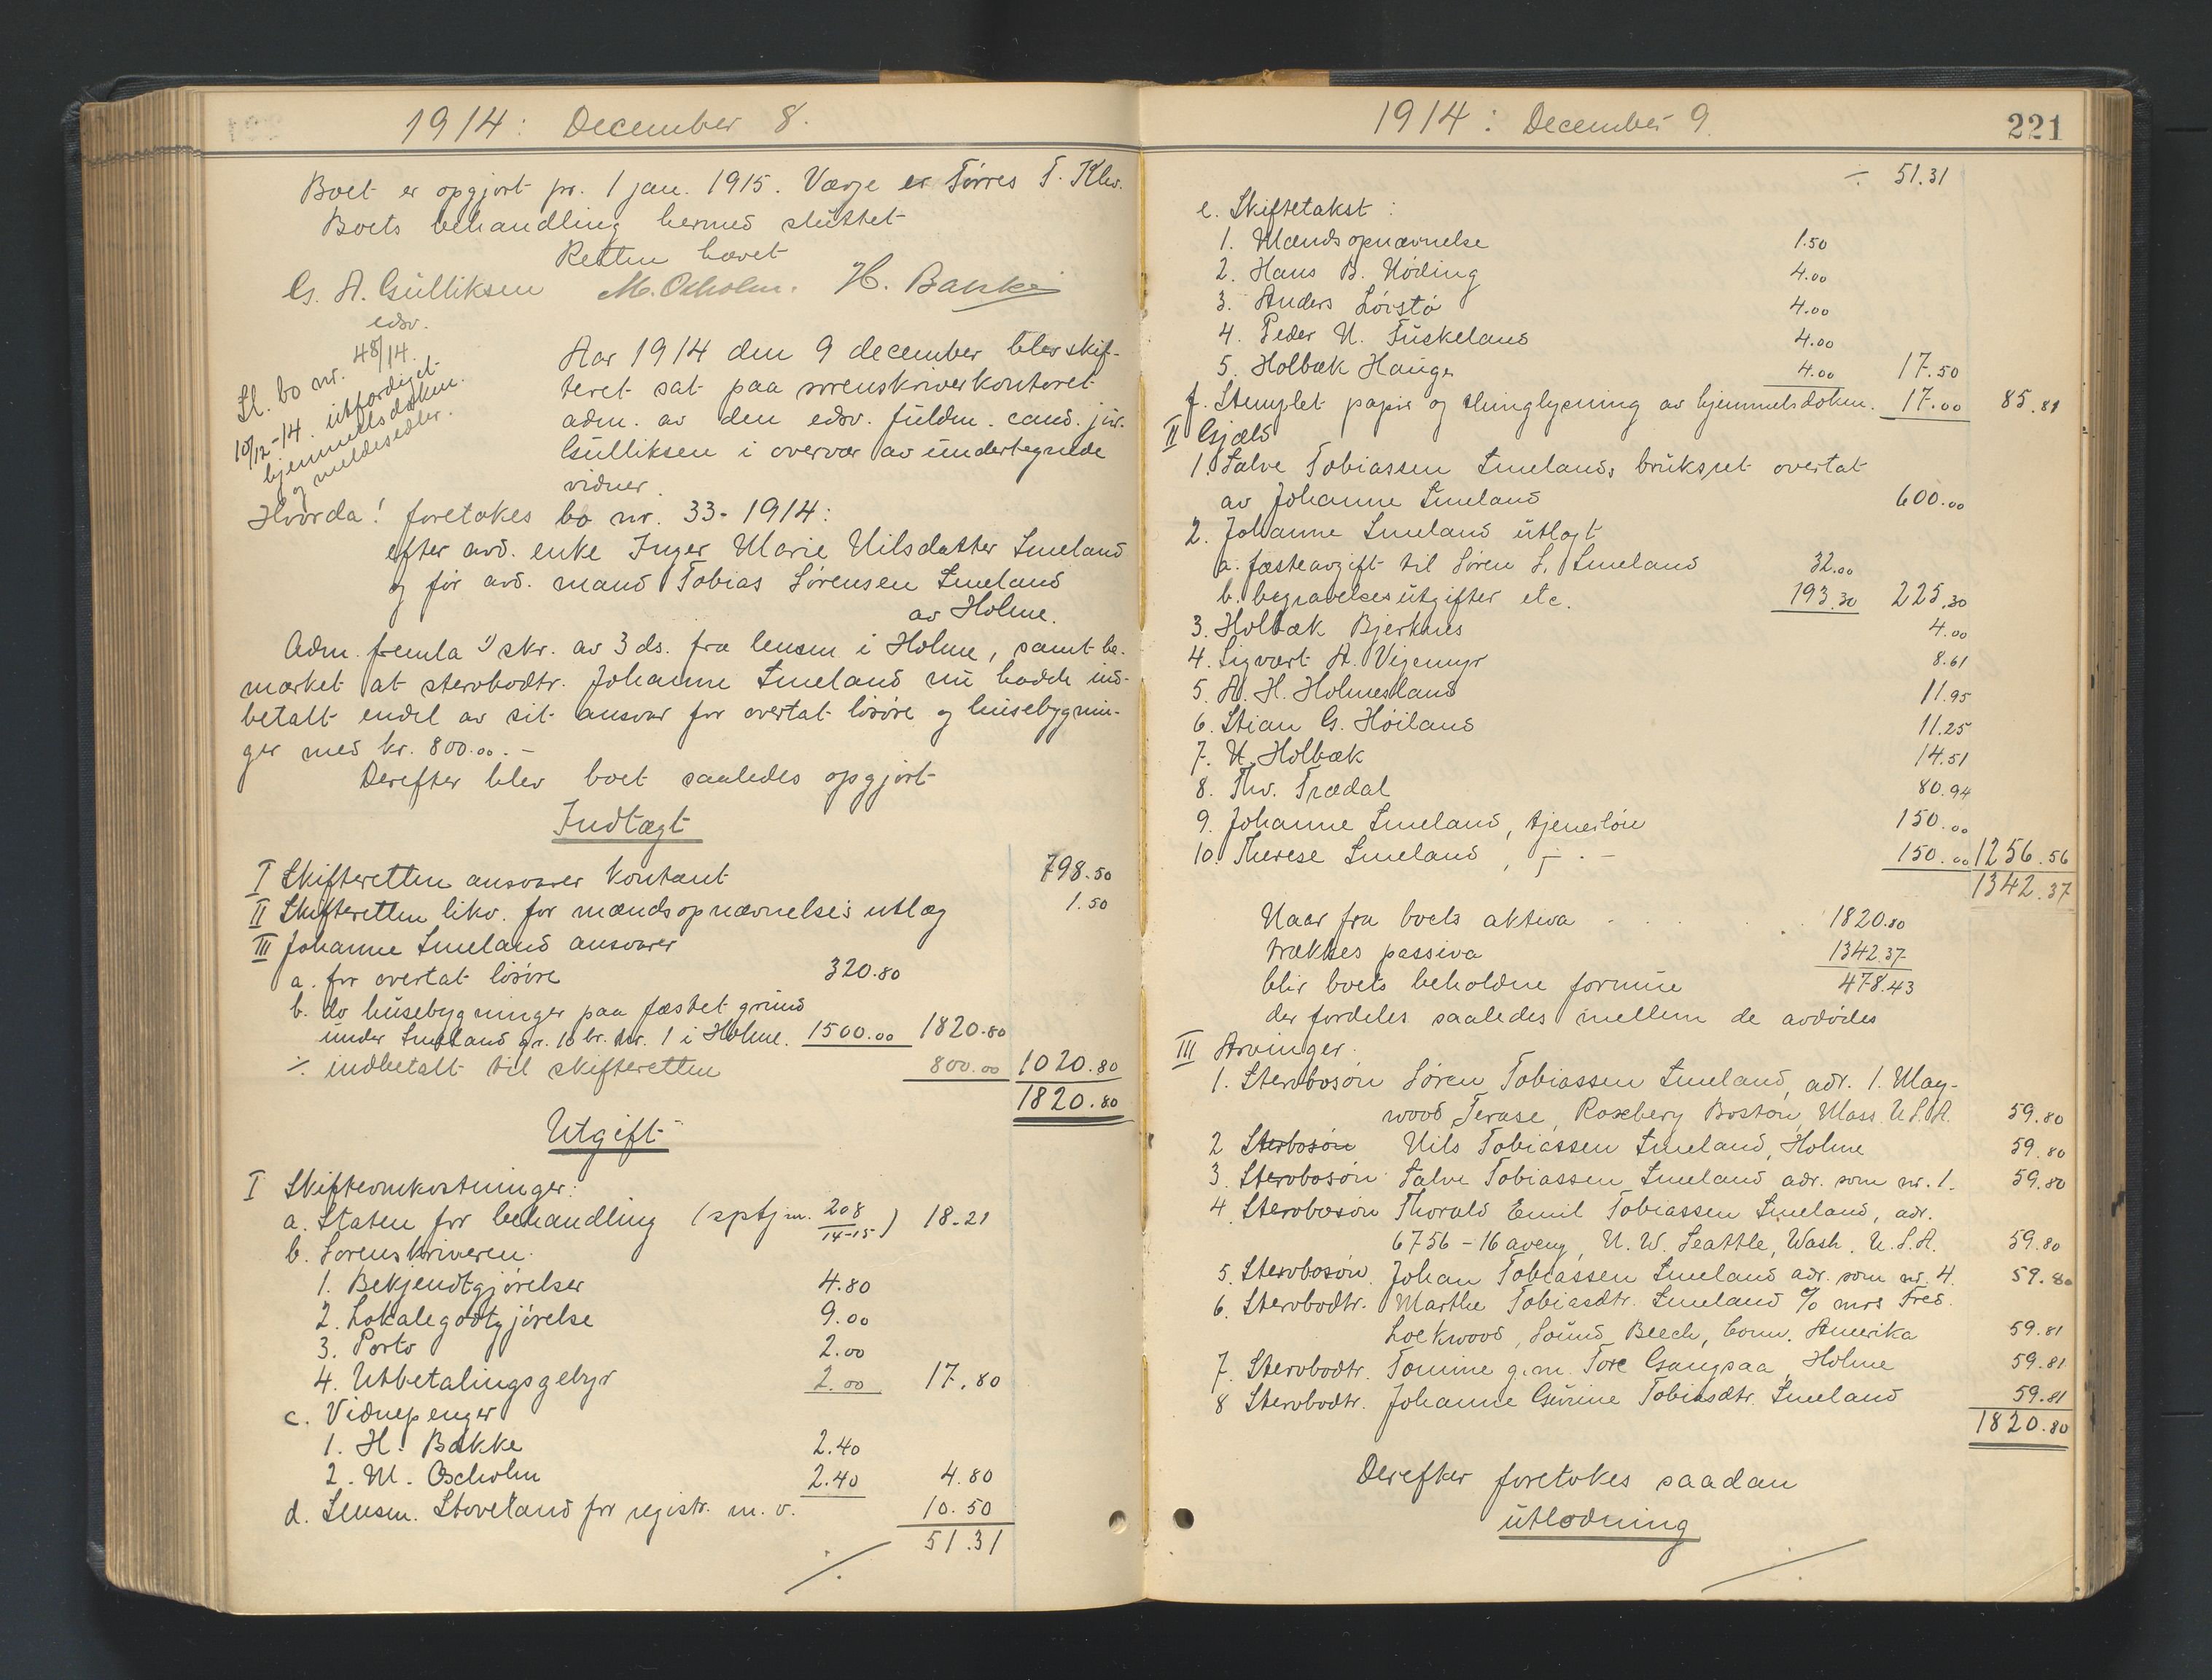 1914: December 8.
Boet er opgjort pr. 1 jan. 1915. Værje er Tørres T. Klev.
Boets behandling hermed sluttet
Retten hævet
G. A. Gulliksen M. Oscholm. H. Bakke
edsv.
Sl. bo nr. 48/14.
10/12-14. utfærdiget
hjemmelsdokm.
og meldesedler.
Aar 1914 den 9 december blev skif-
teret sat paa sorenskriverkontoret
adm. av den edsv. fuldm. cand. jur.
Gulliksen i overvær av undertegnede
vidner.
Hvorda! foretokes bo nr. 33-1914:
efter avd. enke Inger Marie Nilsdatter Smeland
og før avd. mand Tobias Sørensen Smeland
av Holme.
Adm. fremla 1) skr. av 3 ds. fra lensm i Holme, samt be-
merket at stervbodtr. Johanne Smeland nu hadde ind-
betalt endel av sit ansvar for overtat løsøre og husebygnin-
ger med kr. 800.00.-
Derefter blev boet saaledes opgjort
Indtægt
I Skifteretten ansvarer kontant 798.50
II Skifteretten likv. for mændsopnævnelses utlæg 1.50
III Johanne Smeland ansvarer
a. for overtat løsøre 320.80
b. do husebygninger paa fæstet grund
under Smeland gr. 10 br. nr. 1 i Holme. 1500.00 1820.80
÷ indbetalt til skifteretten 800.00 1020.80
1820.80
Utgift
I Skifteomkostninger:
a. Staten for behandling (sptj nr. 208/14-15) 18.21
b. Sorenskriveren:
1. Bekjendtgjørelser 4.80
2. Lokalegodtgjørelse 9.00
3. Porto 2.00
4. Utbetalingsgebyr 2.00 17.80
c. Vidnepenger
1. H. Bakke 2.40
2. M. Oscholm 2.40 4.80
d. Lensm. Stoveland for registr. m. v. 10.50
51.31
1914: December 9. 221
÷ 51.31
e. Skiftetakst:
1. Mændsopnævnelse 1.50
2. Hans B. Nøding 4.00
3. Anders Løvstø 4.00
4. Peder N. Tuskeland 4.00
5. Holbæk Hauge 4.00 17.50
f. Stemplet papir og thinglysning av hjemmelsdokm. 17.00 85.81
II Gjæld
1. Salve Tobiassen Smelands bruksret overtat
av Johanne Smeland 600.00
2. Johanne Smeland utlagt
a. fæsteavgift til Søren S. Smeland 32.00
b. begravelsesutgifter etc. 193.30 225.30
3. Holbæk Bjerknes 4.00
4. Sigvart A. Vigemyr 8.61
5. A. H. Holmesland 11.95
6. Stian G. Høiland 11.25
7. N. Holbæk 14.51
8. Thv. Trædal 80.94
9. Johanne Smeland, tjenerløn 150.00
10. Therese Smeland, -"- 150.00 1256.56
1342.37
Naar fra boets aktiva 1820.80
trækkes passiva 1342.37
blir boets beholdne formue 478.43
der fordeles saaledes mellem de avdødes
III Arvinger.
1. Stervbosøn Søren Tobiassen Smeland, adr. 1. May-
wood Terase, Roxbery Boston, Mass. U.S.A. 59.80
2 Stervbosøn Nils Tobiassen Smeland, Holme 59.80
3. Stervbosøn Salve Tobiassen Smeland adr. som nr. 1. 59.80
4 Stervbosøn Thorald Emil Tobiassen Smeland, adr.
6756 - 16 aveny, N. W. Seattle, Wash. U.S.A. 59.80
5. Stervbosøn Johan Tobiassen Smeland adr. som nr. 4. 59.80
6. Stervbodtr. Marthe Tobiasdtr. Smeland c/o mrs Fred.
Lockwood, Sound Beech, Conn. Amerika 59.81
7. Stervbodtr. Tomine g. m. Tore Gangsaa, Holme 59.81
8 Stervbodtr. Johanne Gurine Tobiasdtr. Smeland 59.81
1820.80
Derefter foretokes saadan
utlodning